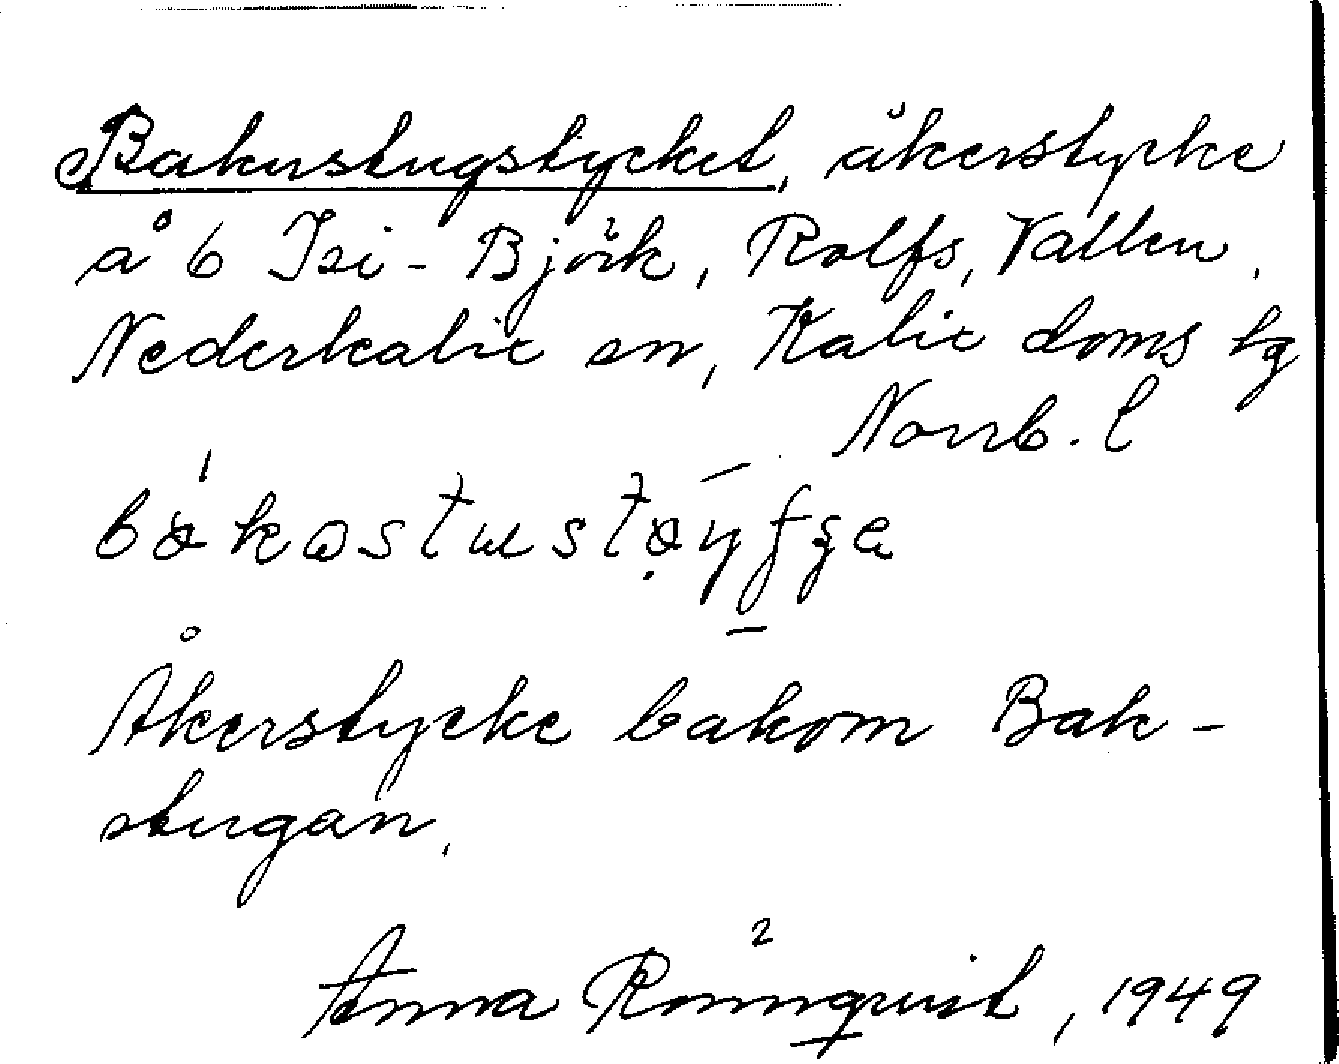 Bakustugstycket, åkerstycke
å 6 Isi-Björk, Rolfs, Vallen,
Nederkalix sn, Kalix doms tg
Norrb. l
Åkerstycke bakom Bak-
stugan.
Anna Rönnqvist, 1949